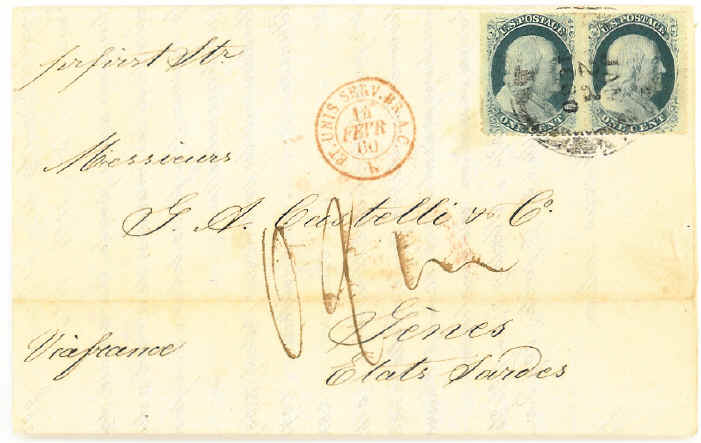 U.S. POSTAGE
U.S. POSTAGE
ONE CENT
ONE CENT
per first Str.
ET. UNIS SERV. BR. A.C.
FEVR
60
Messieurs
G. A. Castelli & Co.
Gênes
Etats Sardes
Via france